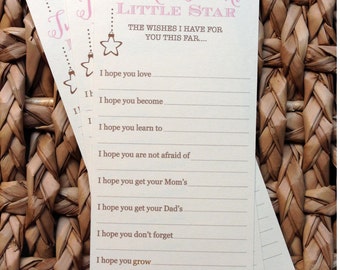 LITTLE STAR
THE WISHES I HAVE FOR
YOU THIS FAR....
I hope you love
I hope you become
I hope you learn to
I hope you are not afraid of
I hope you get your Mom's
I hope you get your Dad's
I hope you don't forget
I hope you grow